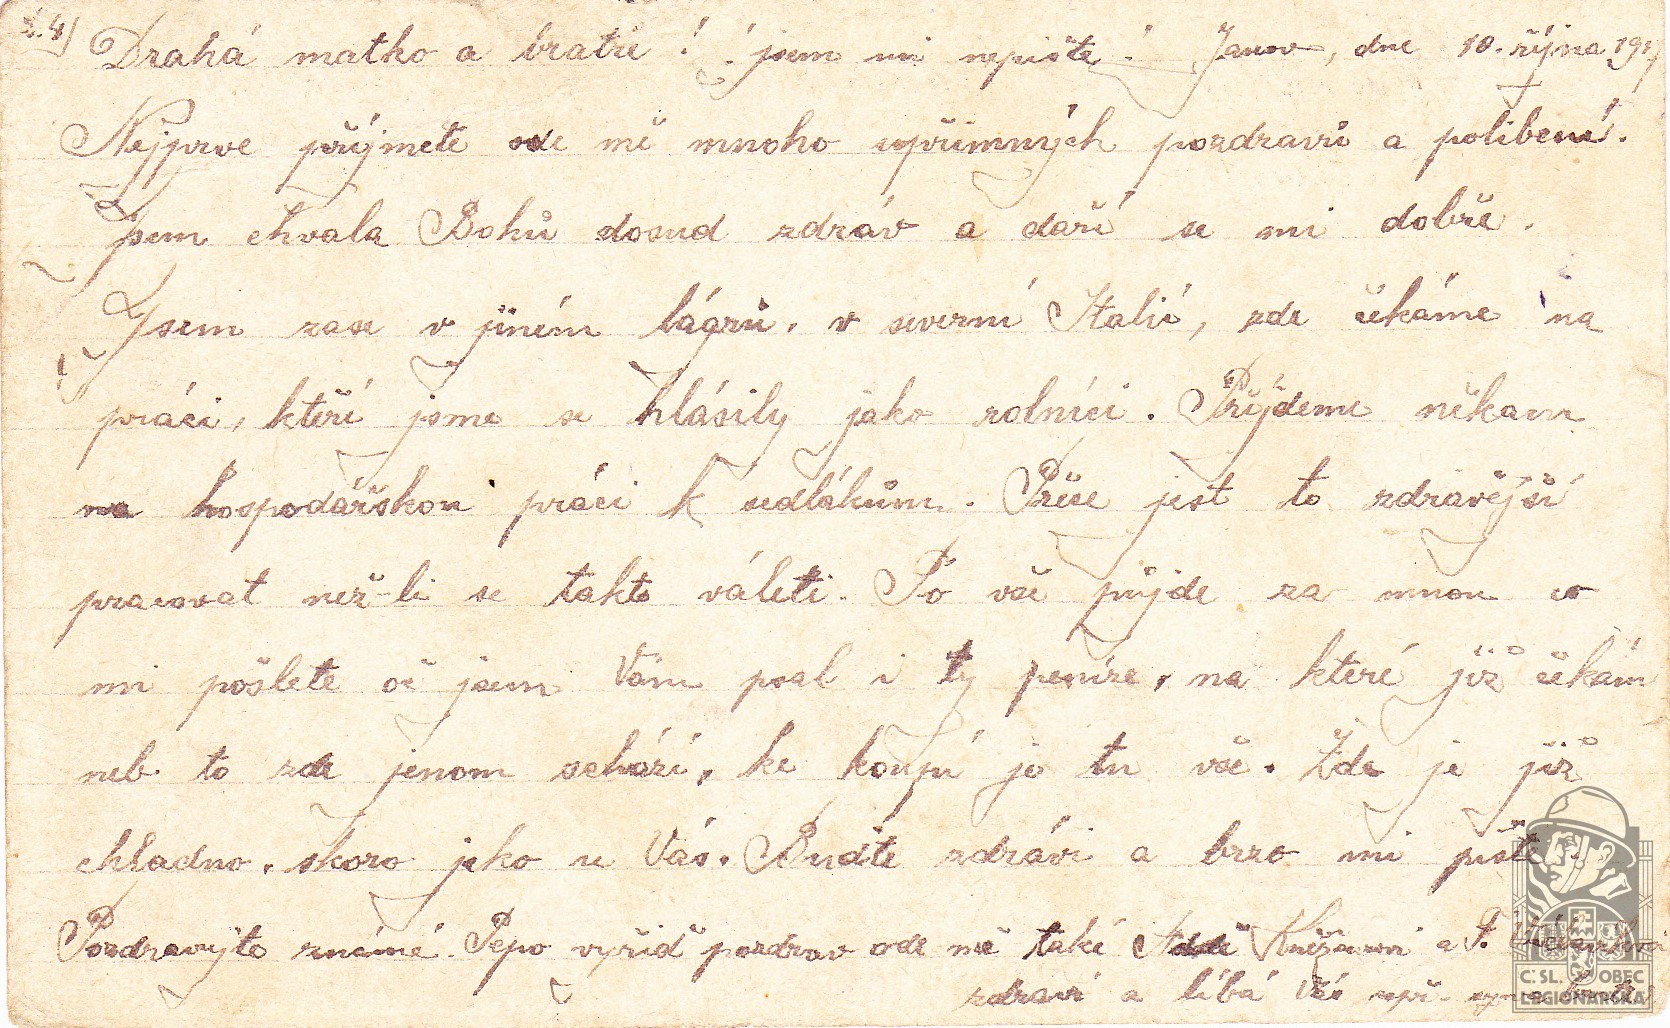 č. 4)
Drahá matko a bratře! ! jsem mi nepište! Janov, dne 10. října 1917
Nejprve příjmete ode mě mnoho upřimných pozdravů a polibení.
Jsem chvala Bohů dosud zdráv a daří se mi dobře.
Jsem zase v jiném lágrů, v severní Italií, zde čékáme na
práci, kteří jsme se hlásily jako rolníci. Příjdeme někam
na hospodářskou práci k sedlákům. Přece jest to zdravější
pracovat než-li se takto váleti. Pó vše půjde za mnou co
mi pošlete oč jsem Vám psal i ty peníze, na které již čekám
neb to zde jenom scházi, ke koupí jo tu vše. Zde je již
chladno, skoro jako u Vás. Buďte zdrávi a brzo mi pište.
Pozdravyjto známé. Pepo vyřiď pozdrav ode mě také a F.
zdraví a líbá Vás upř. syn a bratr
Č SL. OBEC
LEGIONÁŘSKÁ